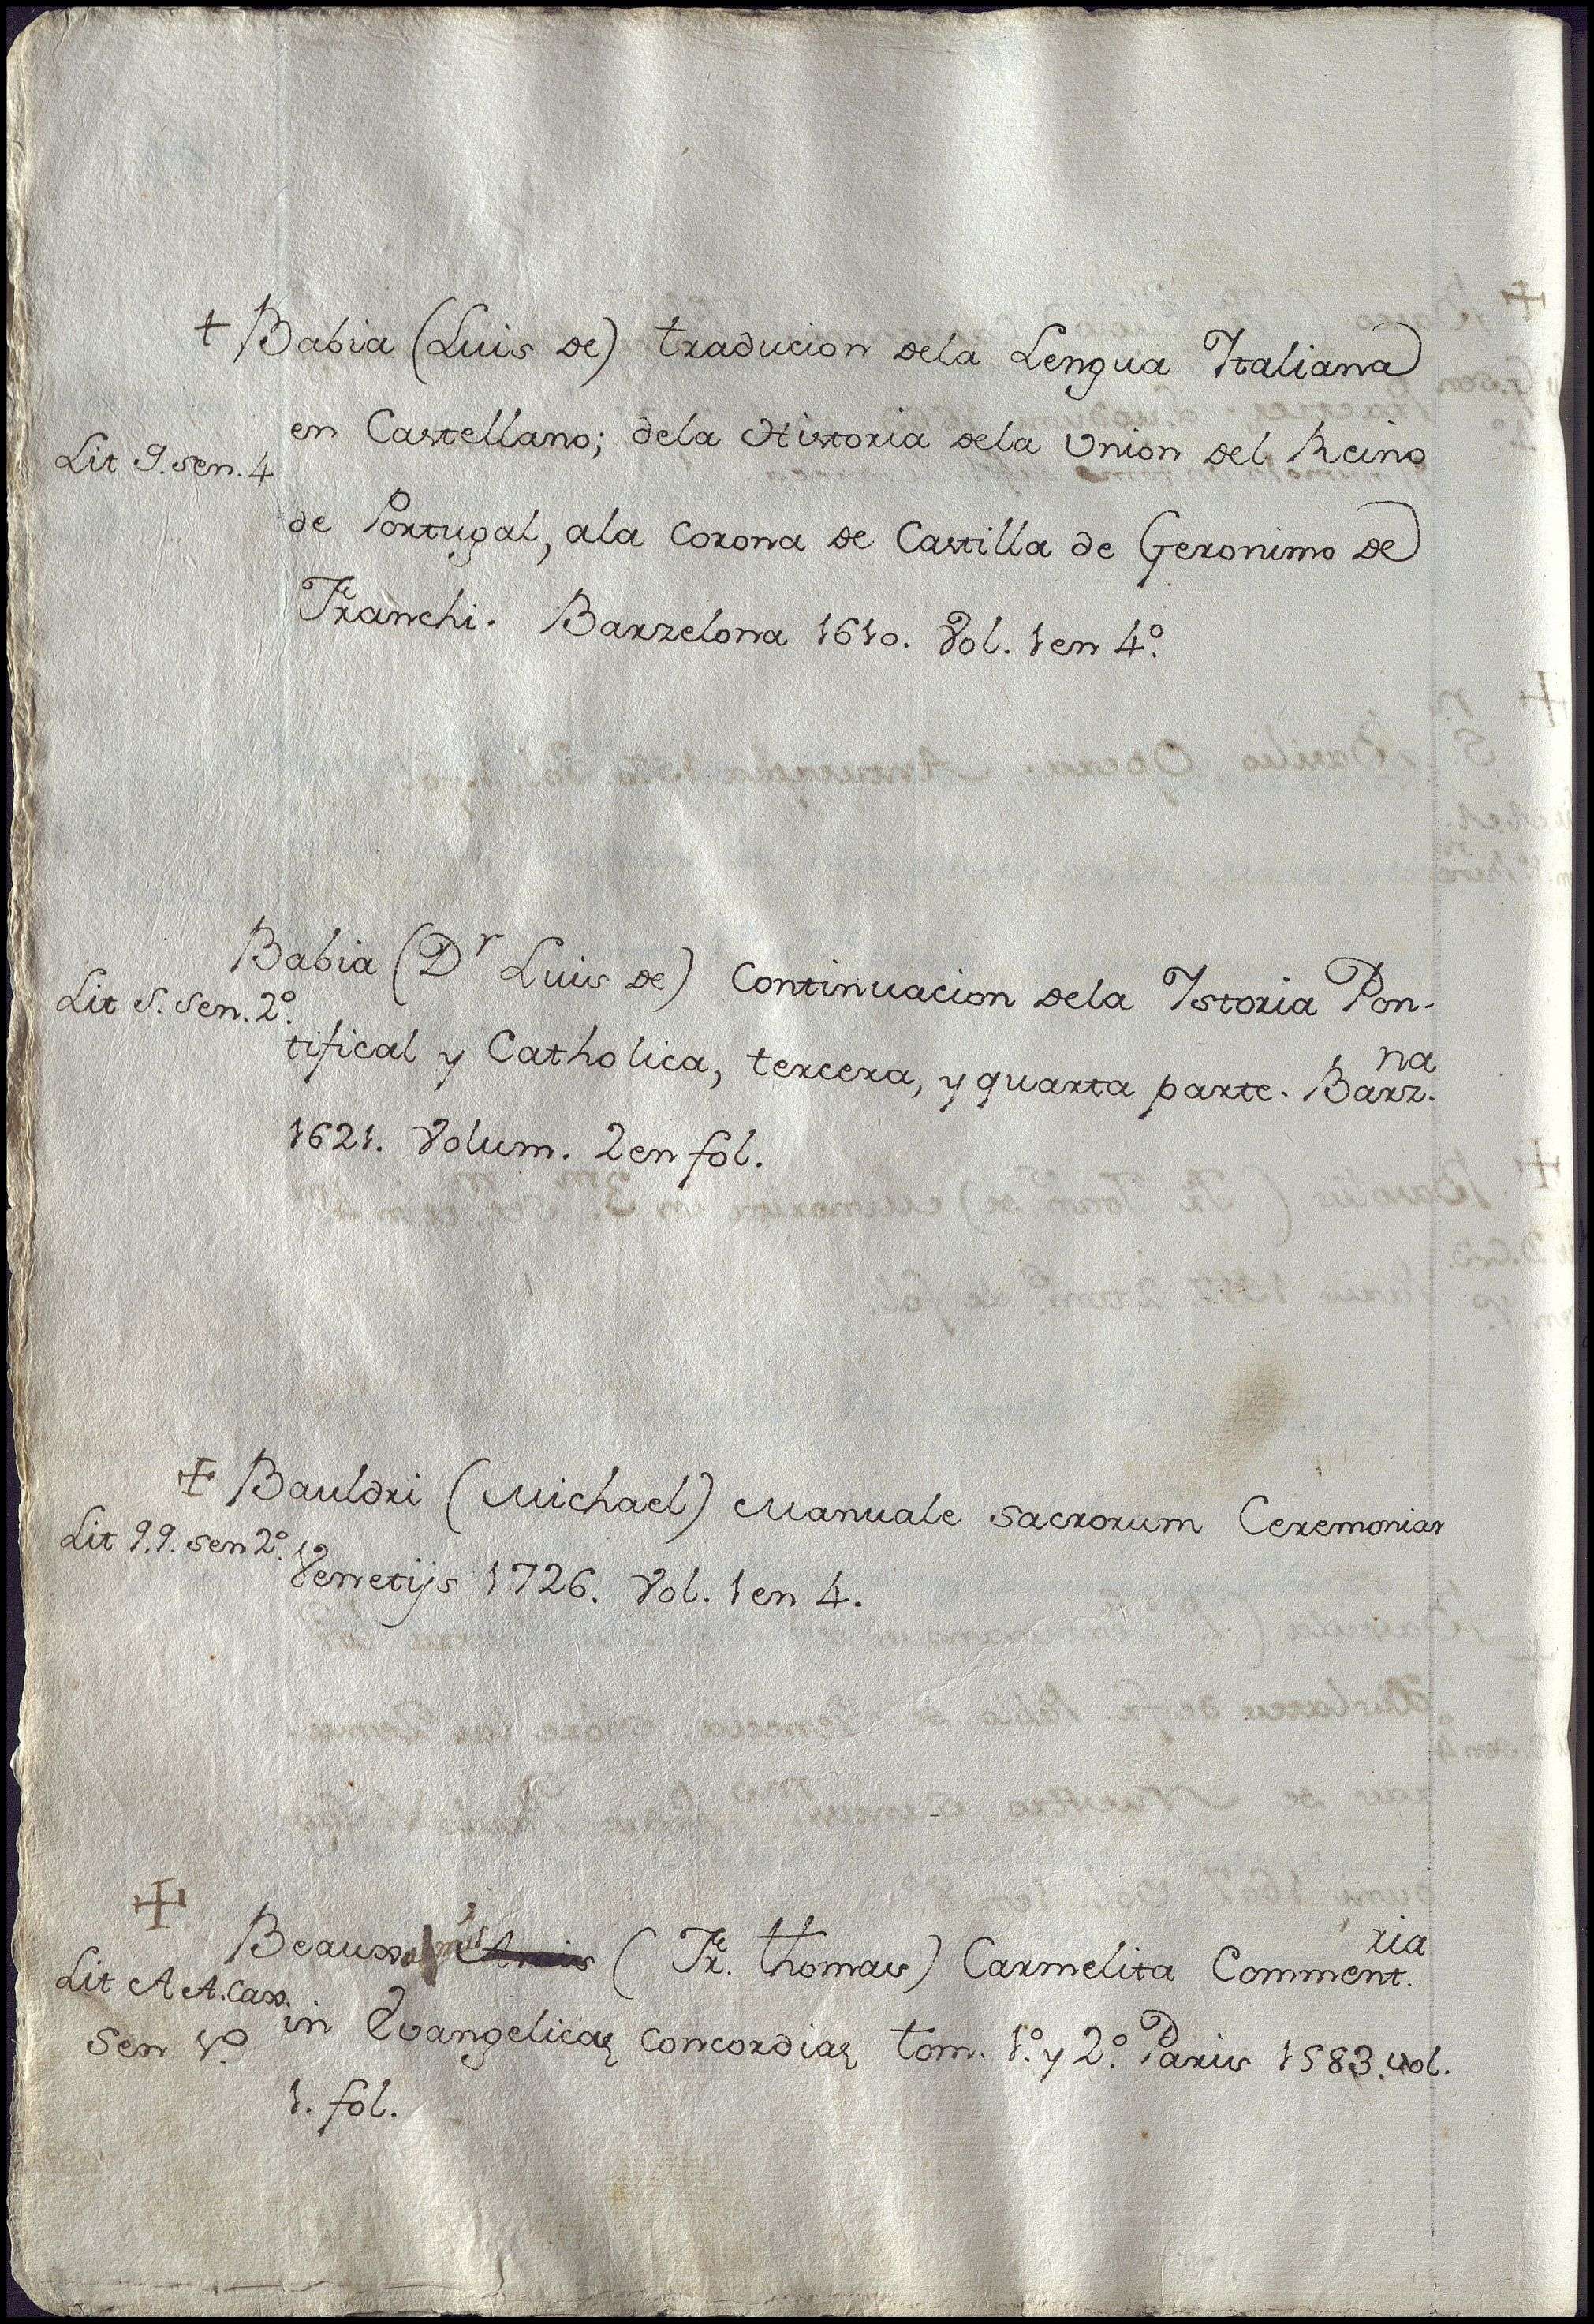 + Babia (Luis de) traducion dela Lengua Italiana
en Castellano; dela Historia dela Union del Reino
Lit 9. sen. 4
de Portugal, ala Corona de Castilla de Geronimo de
Franchi. Barzelona 1610. Vol. 1 en 4º.
Babia (Dr Luis de) Continuacion dela Istoria Pon-
Lit S. Sen. 2º.
tifical y Catholica, tercera, y quarta parte. Barz.na
1621. Volum. 2 en fol.
+ Bauldri (Michael) Manuale sacrorum Ceremoniar
Lit 9.9. sen 2º.
Venetijs 1726. Vol. 1 en 4.
+
Beaux (Fr. Thomas) Carmelita Comment.ria
Lit A A. Cax.
in Evangelicas Concordias tom. 1º. y 2º. Paris 1583. vol.
Sen 1º.
1. fol.